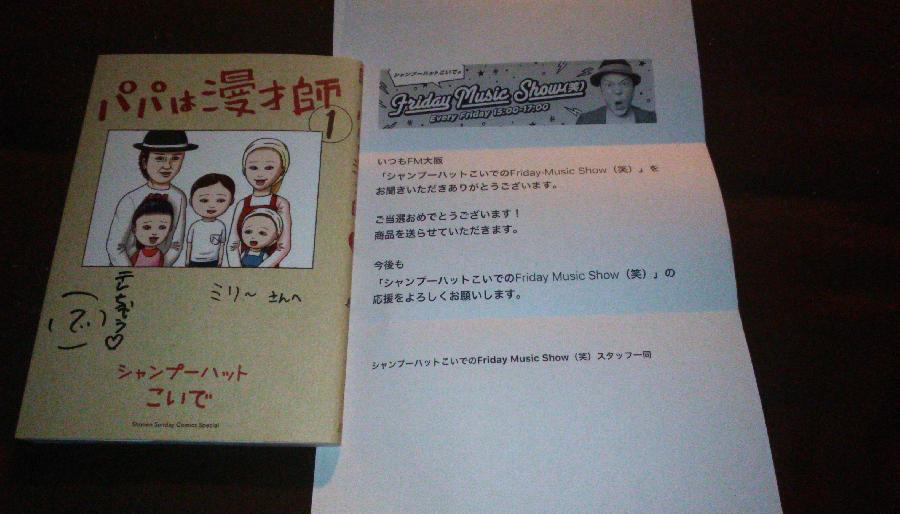 パパは漫才師
1
ミリ〜さんへ
シャンプーハット
こいで
Shonen Sunday Comics Special
シャンプーハットこいでの
Friday Music Show(笑)
Every Friday 15:00-17:00
いつもFM大阪
「シャンプーハットこいでのFriday Music Show（笑）」を
お聞きいただきありがとうございます。
ご当選おめでとうございます！
商品を送らせていただきます。
今後も
「シャンプーハットこいでのFriday Music Show（笑）」の
応援をよろしくお願いします。
シャンプーハットこいでのFriday Music Show（笑）スタッフ一同